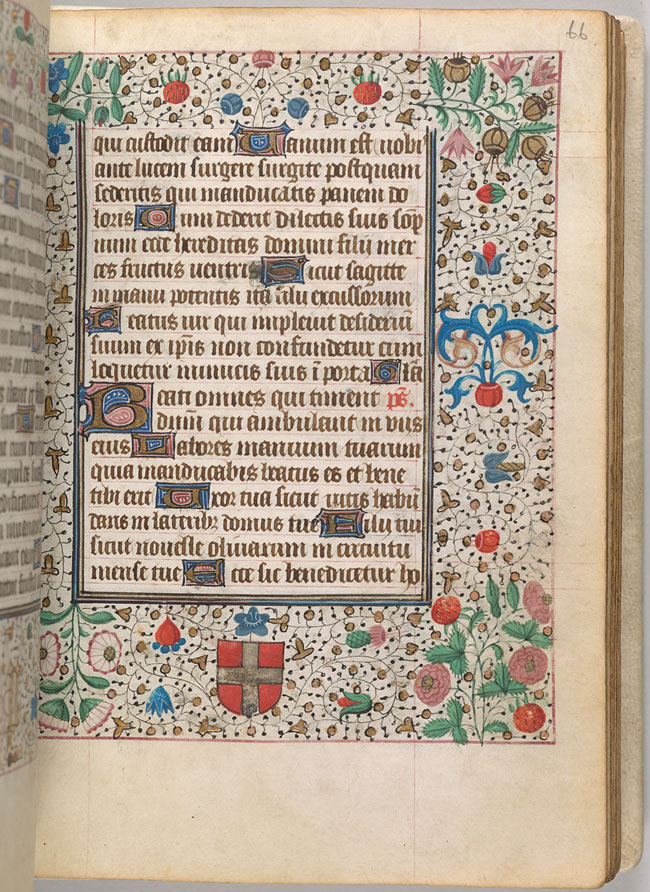 66
qui custodit eam Vanum est uobi
ante lucem surgere surgite postquam
sederitis qui manducatis panem do
loris Cum dederit dilectis suis sop
num ecce hereditas domini filij mer
ces fructus uentris Sicut sagitte
in manu potentis ita filij excussorum
Beatus uir qui impleuit desideriũ
suum ex ip̃is non confundetur cum
loquetur inimicis suis ĩ porta Gl̃a
Beati omnes qui timent ps̃.
dñm qui ambulant in viis
eius Labores manuum tuarum
quia manducabis beatus es et bene
tibi erit Uxor tua sicut uitis habũ
dans in lateribꝫ domus tue Filij tui
sicut nouelle oliuarum in circuitu
mense tue Ecce sic benedicetur ho